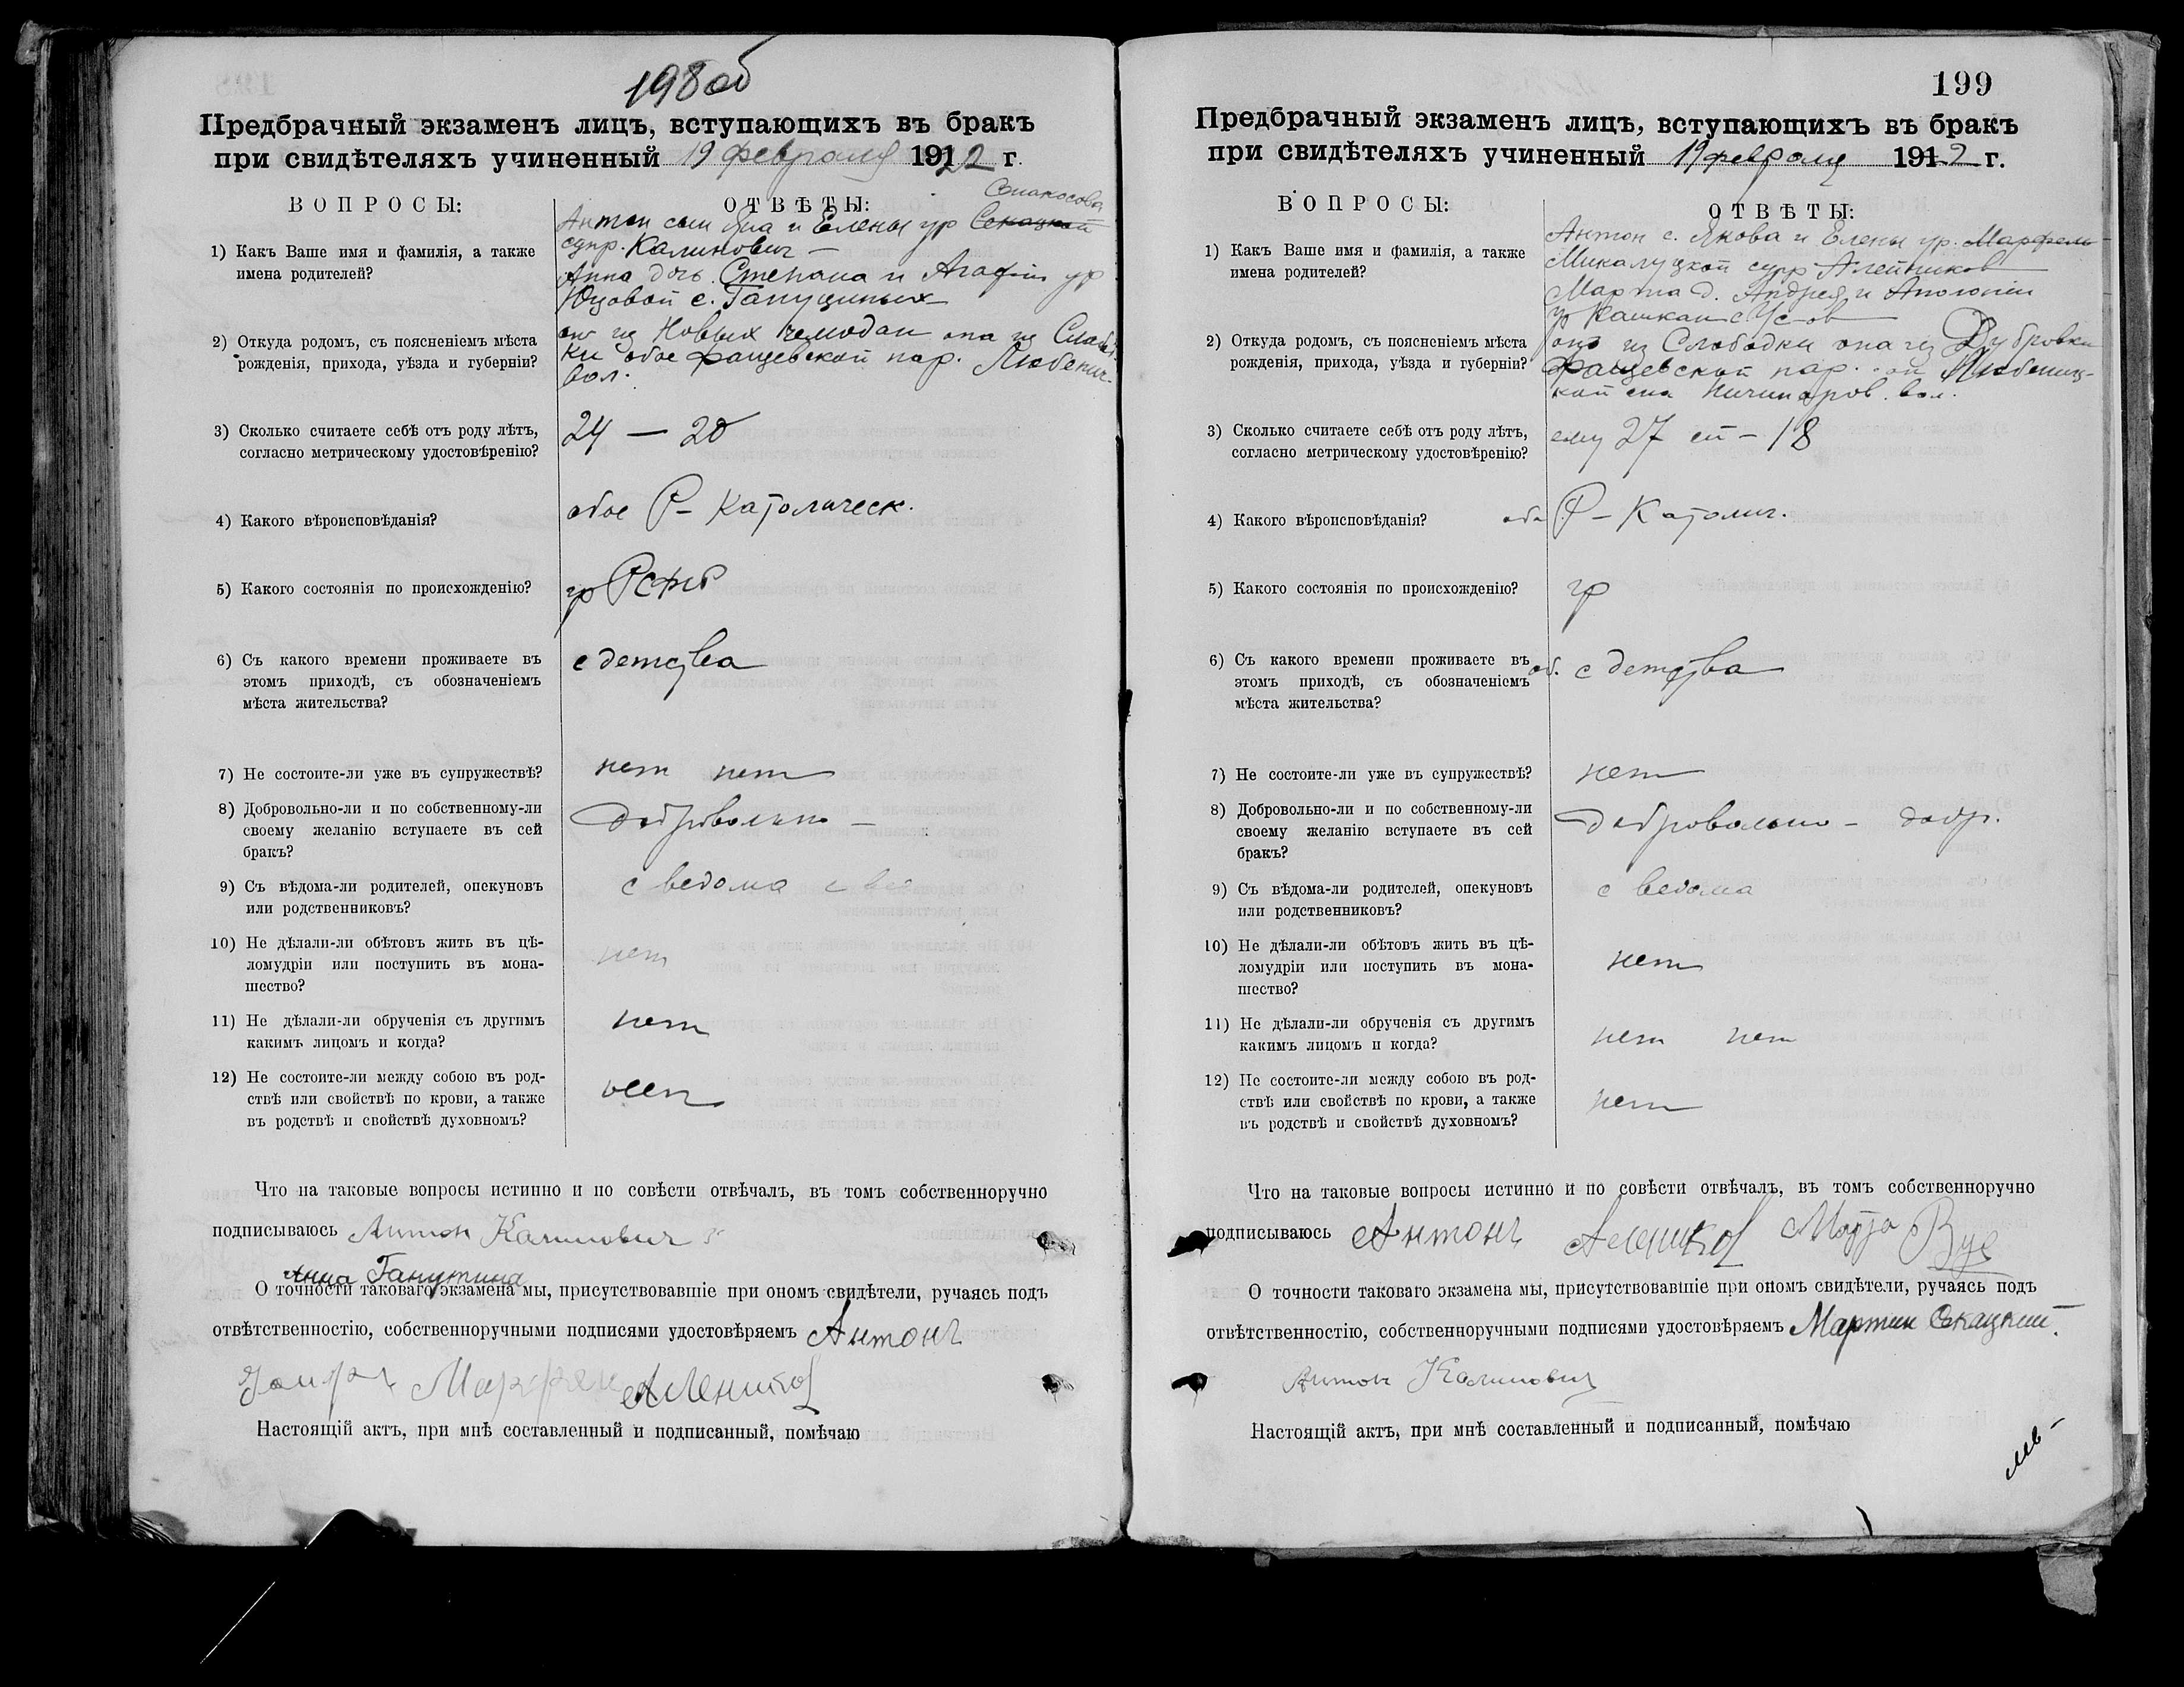 198 об
Предбрачный экзаменъ лицъ, вступающихъ въ бракъ
при свидѣтеляхъ учиненный 19 февраля 1922 г.
ВОПРОСЫ:
ОТВѢТЫ:
1) Какъ Ваше имя и фамилія, а также
имена родителей?
Антон сын Яна и Елены ур
супр. Калинович —
Анна дочь Степана и Агафіи ур
Юцовой с.
2) Откуда родомъ, съ поясненіемъ мѣста
рожденія, прихода, уѣзда и губерніи?
он из Новых Чемодан она из Слобод
ки обое Фащевской пар. Любенич.
вол.
3) Сколько считаете себѣ отъ роду лѣтъ,
согласно метрическому удостовѣренію?
24 — 20
4) Какого вѣроисповѣданія?
обое Р – Католическ.
5) Какого состоянія по происхожденію?
гр РСФСР
6) Съ какого времени проживаете въ
этомъ приходѣ, съ обозначеніемъ
мѣста жительства?
с детства
7) Не состоите-ли уже въ супружествѣ?
нет нет
8) Добровольно-ли и по собственному-ли
своему желанію вступаете въ сей
бракъ?
добровольно —
9) Съ вѣдома-ли родителей, опекуновъ
или родственниковъ?
с ведома с ве
10) Не дѣлали-ли обѣтовъ жить въ цѣ-
ломудріи или поступить въ мона-
шество?
нет
11) Не дѣлали-ли обрученія съ другимъ
какимъ лицомъ и когда?
нет
12) Не состоите-ли между собою въ род-
ствѣ или свойствѣ по крови, а также
въ родствѣ и свойствѣ духовномъ?
нет
Что на таковые вопросы истинно и по совѣсти отвѣчалъ, въ томъ собственноручно
подписываюсь Антон Калинович
Анна Ганутина
О точности таковаго экзамена мы, присутствовавшіе при ономъ свидѣтели, ручаясь подъ
отвѣтственностію, собственноручными подписями удостовѣряемъ Антонъ
Алеников
Настоящій актъ, при мнѣ составленный и подписанный, помѣчаю
199
Предбрачный экзаменъ лицъ, вступающихъ въ бракъ
при свидѣтеляхъ учиненный 19 февраля 1922 г.
ВОПРОСЫ:
ОТВѢТЫ:
1) Какъ Ваше имя и фамилія, а также
имена родителей?
Антон с. Якова и Елены ур.
супр Алейников
Марта д. Андрея и Апполоніи
ур
2) Откуда родомъ, съ поясненіемъ мѣста
рожденія, прихода, уѣзда и губерніи?
он из Слободки она из Дубровки
Фащевской пар. он Любенич-
кой она вол.
3) Сколько считаете себѣ отъ роду лѣтъ,
согласно метрическому удостовѣренію?
ему 27 ей – 18
4) Какого вѣроисповѣданія?
обо Р – Католич.
5) Какого состоянія по происхожденію?
гр
6) Съ какого времени проживаете въ
этомъ приходѣ, съ обозначеніемъ
мѣста жительства?
об. с детства
7) Не состоите-ли уже въ супружествѣ?
нет
8) Добровольно-ли и по собственному-ли
своему желанію вступаете въ сей
бракъ?
добровольно – добр.
9) Съ вѣдома-ли родителей, опекуновъ
или родственниковъ?
с ведома
10) Не дѣлали-ли обѣтовъ жить въ цѣ-
ломудріи или поступить въ мона-
шество?
нет
11) Не дѣлали-ли обрученія съ другимъ
какимъ лицомъ и когда?
нет нет
12) Не состоите-ли между собою въ род-
ствѣ или свойствѣ по крови, а также
въ родствѣ и свойствѣ духовномъ?
нет
Что на таковые вопросы истинно и по совѣсти отвѣчалъ, въ томъ собственноручно
подписываюсь Антонъ Алеников
О точности таковаго экзамена мы, присутствовавшіе при ономъ свидѣтели, ручаясь подъ
отвѣтственностію, собственноручными подписями удостовѣряемъ Мартин Секацкий.
Антон Калинович
Настоящій актъ, при мнѣ составленный и подписанный, помѣчаю